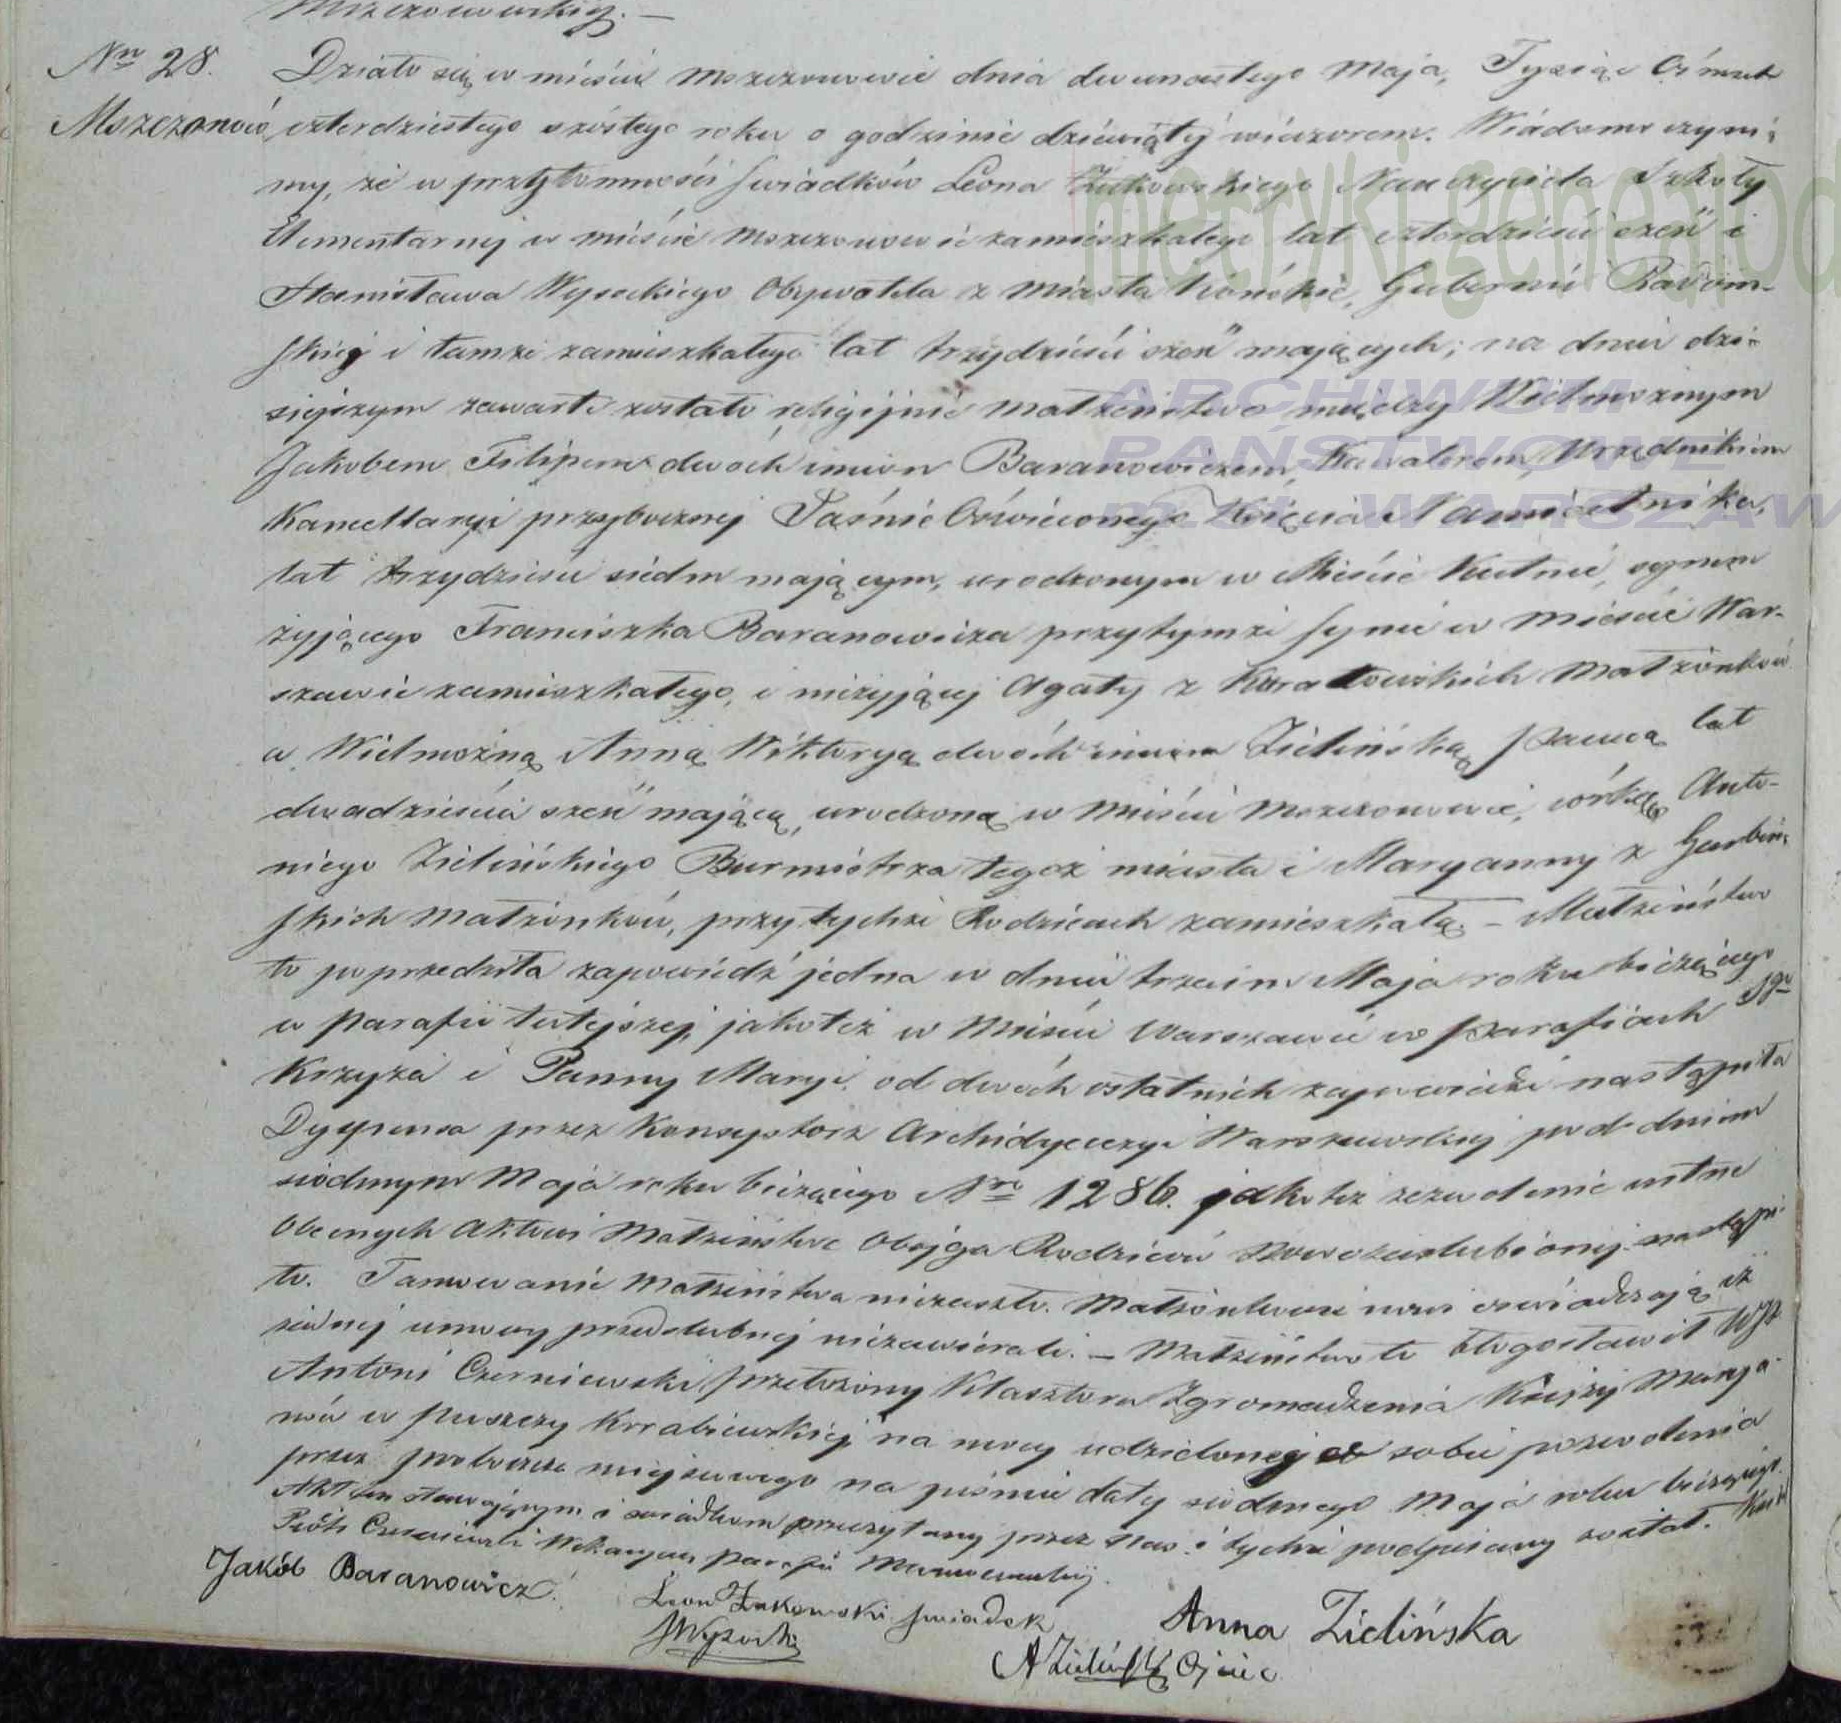 Mszczonowskiej. —
Nro 28. Działo się w mieście Mszczonowie dnia dwunastego Maja, Tysiąc Ośmset
Mszczonów czterdziestego szóstego roku o godzinie dziewiątéj wieczorem. Wiadomo czyni-
my, że w przytomności świadków Leona Żukowskiego Nauczyciela Szkoły
Elementarnej w mieście Mszczonowie zamieszkałego lat czterdzieści sześć i
Stanisława Wysockiego Obywatela z miasta Końskie, Gubernii Radom-
skiéj i tamże zamieszkałego lat trzydzieści sześć mających; na dniu dzi-
siejszym zawarte zostało religijnie małżeństwo między Wielmożnym
Jakobem Filipem dwóch imion Baranowiczem, Kawalerem, Urzędnikiem
Kancellaryi przybocznej Jaśnie Oświeconego Księcia Namiestnika,
lat trzydzieści siedm mającym, urodzonym w Mieście Kutnie, synem
żyjącego Franciszka Baranowicza przy tymże synie w mieście War-
szawie zamieszkałego, i nieżyjącej Agaty z małżonków
a Wielmożną Anną Wiktoryą dwóch imion Zielińską Panną lat
dwadzieścia sześć mającą, urodzoną w mieście Mszczonowie, córką Anto-
niego Zielińskiego Burmistrza tegoż miasta i Maryanny z Garbiń-
skich małżonków, przy tychże Rodzicach zamieszkałą. – Małżeństwo
to poprzedziła zapowiedź jedna w dniu trzecim Maja roku bieżącego
w parafii tutejszej, jakoteż w mieście Warszawie w parafiach Sgo
Krzyża i Panny Maryi. od dwóch ostatnich zapowiedzi nastąpiła
Dyspensa przez Konsystorz Archidyecezyi Warszawskiej pod dniem
siódmym Maja roku bieżącego Nro 1286. jakoteż zezwolenie ustne
Obecnych aktowi Małżeństwa Obojga Rodziców Nowozaślubionej nastąpi-
ło. Tamowanie Małżeństwa niezaszło. Małżonkowie nowi oświadczają iż
żadnej umowy przedślubnej niezawierali. – Małżeństwo to błogosławił WJX
Antoni Czerniewski przełożony Klasztoru Zgromadzenia Księży Marya-
nów w puszczy Korabiewskiej na mocy udzielonej sobie pozwolenia
przez proboszcza miejscowego na piśmie daty siódmego Maja roku bieżącego.
Akt ten stawającym i świadkom przeczytany przez Nas i tychże podpisany został.
Piotr Wikaryusz parafii Mszczonowskiej.
Jakób Baranowicz.
Leon Żukowski świadek
Anna Zielińska
SWysocki
AZieliński Ojciec
metryki.genealod
ARCHIWUM
PAŃSTWOWE
m.st. WARSZAW